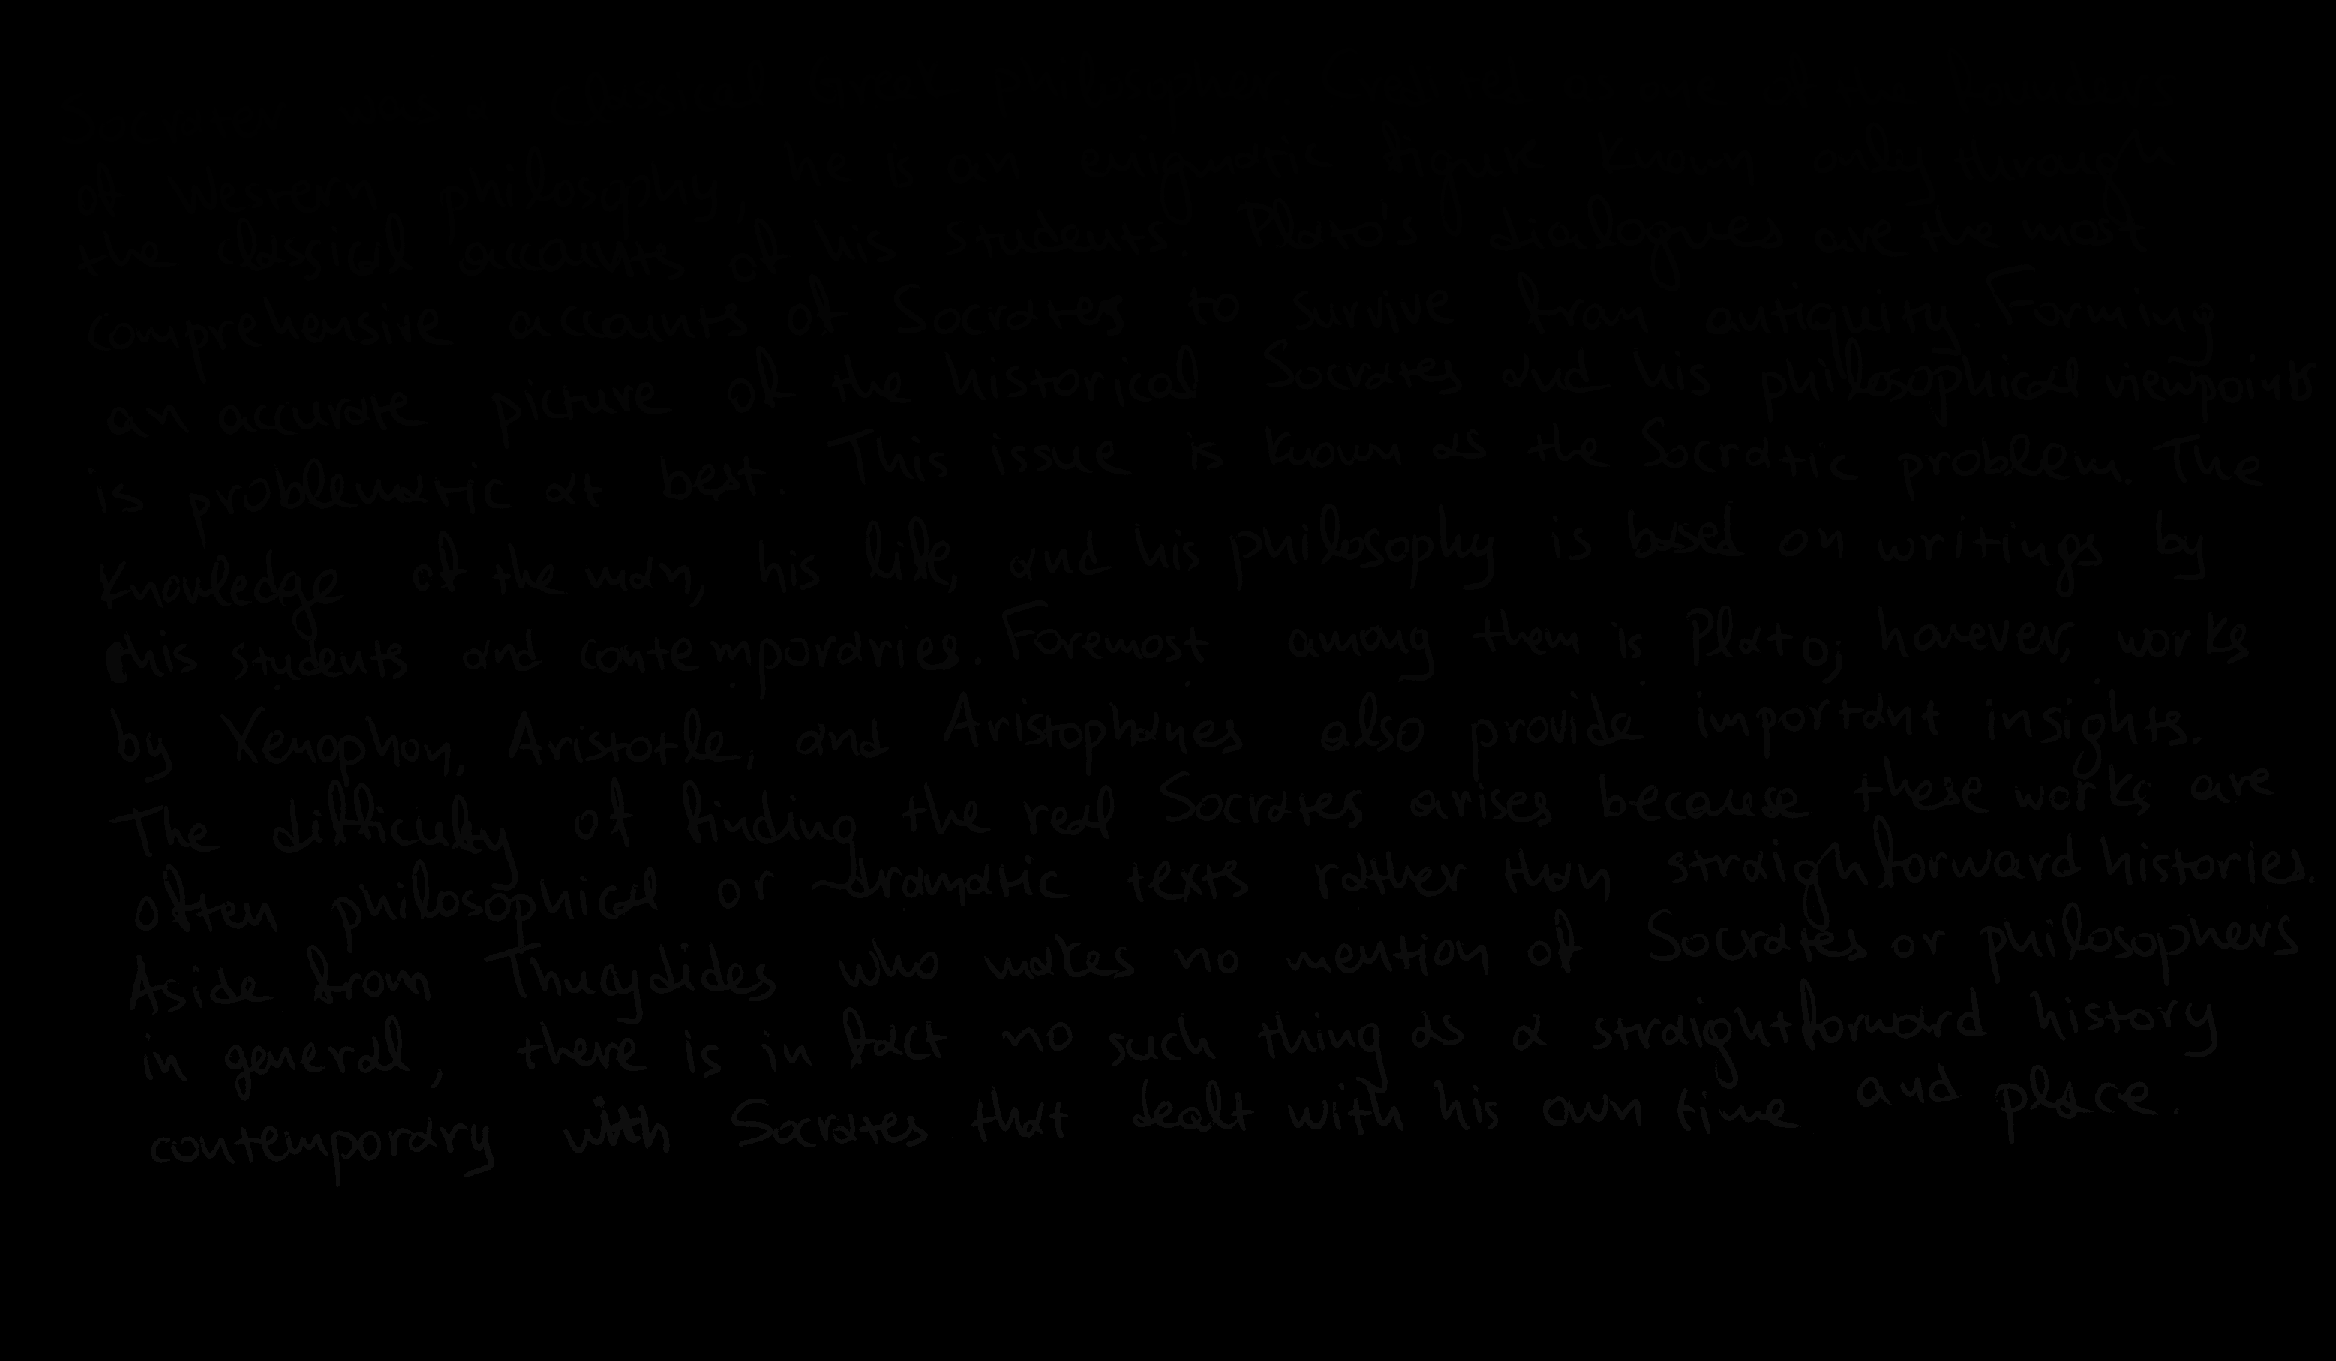 Socrates was a classical Greek philosopher. Credited as one of the founders
of Western philosophy, he is an enigmatic figure known only through
the classical accounts of his students. Plato's dialogues are the most
comprehensive accounts of Socrates to survive from antiquity. Forming
an accurate picture of the historical Socrates and his philosophical viewpoints
is problematic at best. This issue is known as the Socratic problem. The
knowledge of the man, his life, and his philosophy is based on writings by
his students and contemporaries. Foremost among them is Plato; however, works
by Xenophon, Aristotle, and Aristophanes also provide important insights.
The difficulty of finding the real Socrates arises because these works are
often philosophical or dramatic texts rather than straighforward histories.
Aside from Thucydides who makes no mention of Socrates or philosophers
in general, there is in fact no such thing as a straightforward history
contemporary with Socrates that dealt with his own time and place.